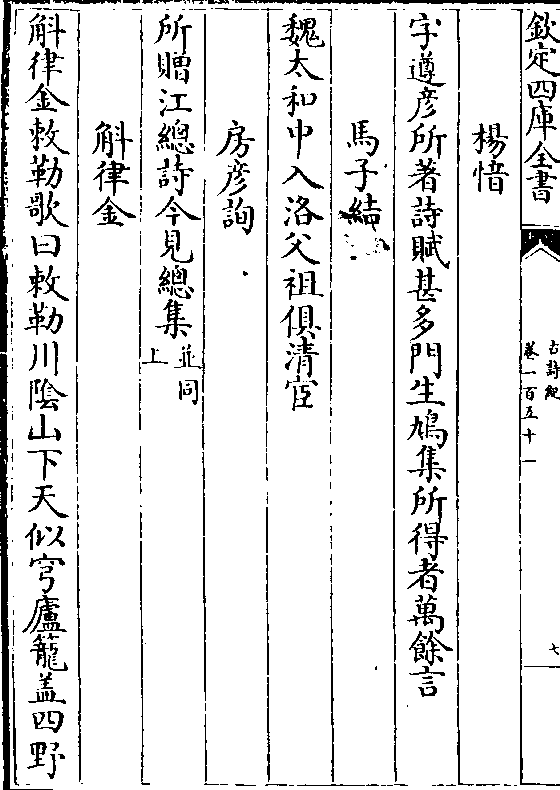 欽定四庫全書
古詩紀
卷一百五十一
七
楊愔
字遵彥所著詩賦甚多門生鳩集所得者萬餘言
馬子結
魏太和中入洛父祖俱清官
房彥詢
所贈江總詩今見總集並同上
斛律金
斛律金敕勒歌曰敕勒川陰山下天似穹廬籠盖四野